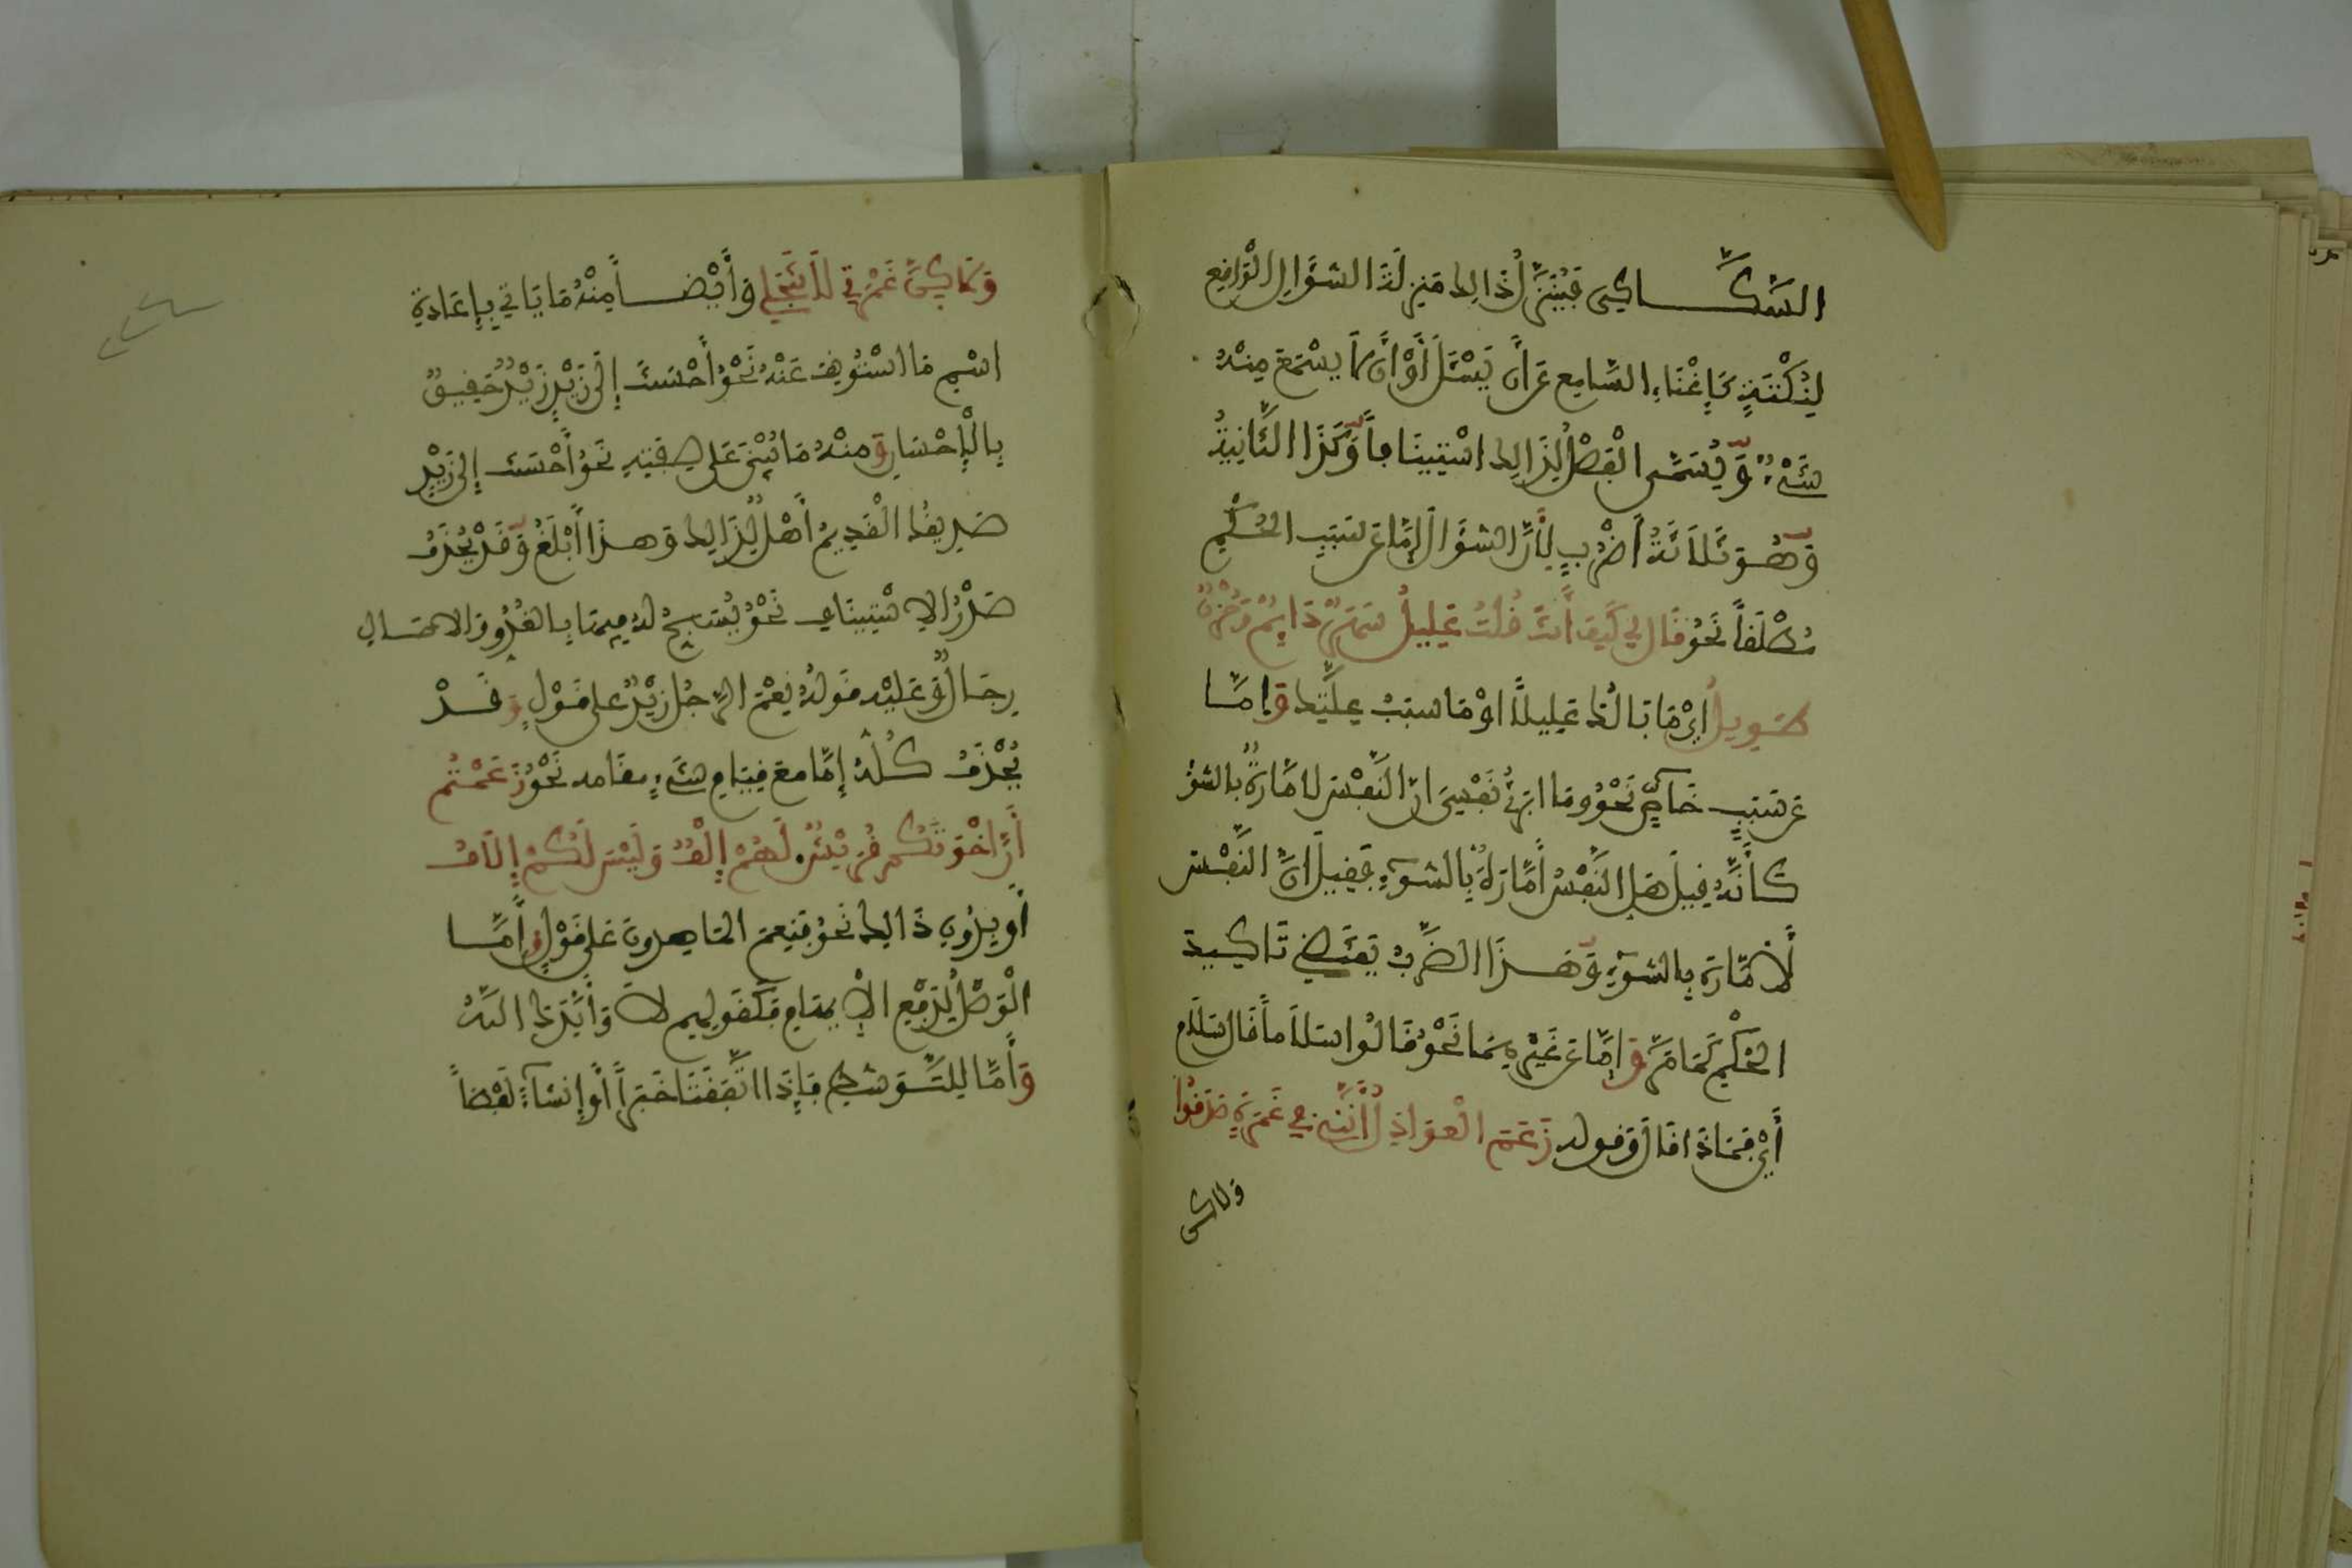 السَّكَّاكِي فَيُنَزَّلُ ذَالِكَ مَنزِلَةَ السُّؤَالِ الْوَافِعِ
لِنُكْتَةٍ كَإِغْنَاءِ السَّامِعِ عَنْ أَن يَسْئَلَ أَوْ أَن لَّا يَسْمَعَ مِنْهُ
شَيْءٌ وَيُسَمَّى الْفَصْلُ لِذَالِكَ اسْتِينَافاً وَكَذَا الثَّانِيَةُ
وَهُوَ ثَلَاثَةُ أَضْرُبٍ لِأَنَّ السُّؤَالَ إِمَّا عَن سَبَبِ الْحُكْمِ
مُطْلَفاً نَحْوُ فَالَ لِي كَيْفَ أَنتَ فُلْتُ عَلِيلُ سَهَرٌ دَايِمٌ وَحُزْنٌ
طَوِيلُ أَيْ مَا بَالُكَ عَلِيلاً أَوْ مَا سَبَبُ عِلَّتِكَ وَإِمَّا
عَن سَبَبٍ خَاصٍّ نَحْوُ وَمَا أُبَرِّئُ نَفْسِيَ إِنَّ النَّفْسَ لَأَمَّارَةٌ بِالسُّوءِ
كَأَنَّهُ فِيلَ هَلِ النَّفْسُ أَمَّارَةٌ بِالسُّوءِ فَفِيلَ إِنَّ النَّفْسَ
لَأَمَّارَة بِالسُّوءِ وَهَذَا الضَّرْبُ يَفْتَضِي تَاكِيدَ
الْحُكْمِ كَمَا مَرَّ وَإِمَّا عَن غَيْرِهِمَا نَحْوُ فَالُوا سَلَاماً فَالَ سَلَام
أَيْ فَمَاذَا فَالَ وَفوله زَعَمَ الْعَوَاذِلُ أَنَّنِي فِي غَمْرَةٍ صَدَفُوا
ولاكن
وَلَاكِنْ غَمْرَتِي لَا تَنْجَلِي وَأَيْضاً مِنْهُ مَا يَاتِي بِإِعَادَةِ
اسْمِ مَا اسْتُونِفَ عَنْهُ نَحْوُ أَحْسَنتَ إِلَى زَيْدٍ زَيْدٌ حَفِيقٌ
بِالْإِحْسَانِ وَمِنْهُ مَا يُبْنَى عَلَى صِفَتِهِ نَحْوُ أَحْسَنتَ إِلَى زَيْدٍ
صَدِيقُكَ الْقَدِيمُ أَهْلٌ لِذَالِكَ وَهَذَا أَبْلَغُ وَقَدْ يُحْذَفُ
صَدْرُ الِاسْتِينَافِ نَحْوُ يُسَبَّحُ لَهُ فِيهَا بِالْغُدُوِّ وَالاصَالِ
رِجَالٌ وَعَلَيْهِ فَوْلُهُ نِعْمَ الرَّجُلُ زَيْدٌ عَلَى فَوْلٍ وَقَدْ
يُحْذَفُ كُلُّهُ إِمَّا مَعَ فِيَامِ شَيْءٍ مَفَامه نَحْوُ زَعَمْتُمُ
أَنَّ اخْوَتَكُم فُرَيْشٌ لَهُمْ إِلْفٌ وَلَيْسَ لَكُمْ إِلَافُ
أَو بِدُونِ ذَالِكَ نَحْوُ فَنِعْمَ الْمَاهِدُونَ عَلَى فَوْلٍ وَأَمَّا
الْوَصْلُ لِدَفْعِ الْإِيهَامِ فَكَفَوْلِهِمْ لَا وَأَيَّدَكَ اللَّهُ
وَأَمَّا لِلتَّوَسُّطِ فَإِذَا اتَّفَفَتَا خَبَراً أَوْ إِنشَاءً لَفْظاً